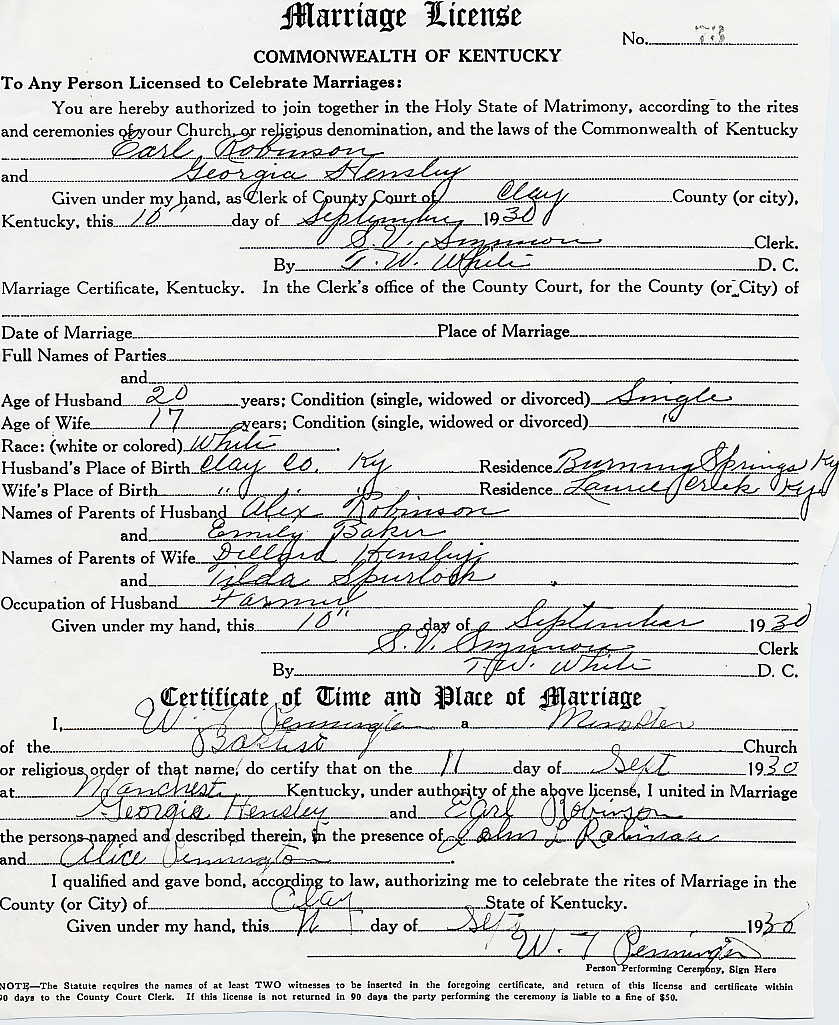 Marriage License
No. 73
COMMONWEALTH OF KENTUCKY
To Any Person Licensed to Celebrate Marriages:
You are hereby authorized to join together in the Holy State of Matrimony, according to the rites
and ceremonies of your Church, or religious denomination, and the laws of the Commonwealth of Kentucky
Earl Robinson
and Georgia Hensley
Given under my hand, as Clerk of County Court of Clay County (or city),
Kentucky, this 10" day of September 1930
S. V. Clerk.
By T. W. White D. C.
Marriage Certificate, Kentucky. In the Clerk's office of the County Court, for the County (or City) of
Date of Marriage Place of Marriage
Full Names of Parties
and
Age of Husband 20 years; Condition (single, widowed or divorced) Single
Age of Wife 17 years; Condition (single, widowed or divorced) "
Race: (white or colored) White.
Husband's Place of Birth Clay Co. Ky Residence Burning Springs Ky
Wife's Place of Birth " " " Residence Laurel Creek Ky
Names of Parents of Husband Alex Robinson
and Emily Baker
Names of Parents of Wife Dillard Hensley
and Tilda Spurlock
Occupation of Husband Farmer
Given under my hand, this 10" day of September 1930
S. V. Clerk
By T. W. White D. C.
Certificate of Time and Place of Marriage
I, W. T. Pennington a Minster
of the Baptist Church
or religious order of that name, do certify that on the 11 day of Sept 1930
at Manchester Kentucky, under authority of the above license, I united in Marriage
Georgia Hensley and Earl Robinson
the persons named and described therein, in the presence of John L Robinson
and Alice Pennington.
I qualified and gave bond, according to law, authorizing me to celebrate the rites of Marriage in the
County (or City) of Clay State of Kentucky.
Given under my hand, this 11 day of Sept 1930
W. T Pennington
Person Performing Ceremony, Sign Here
NOTE—The Statute requires the names of at least TWO witnesses to be inserted in the foregoing certificate, and return of this license and certificate within
90 days to the County Court Clerk. If this license is not returned in 90 days the party performing the ceremony is liable to a fine of $50.